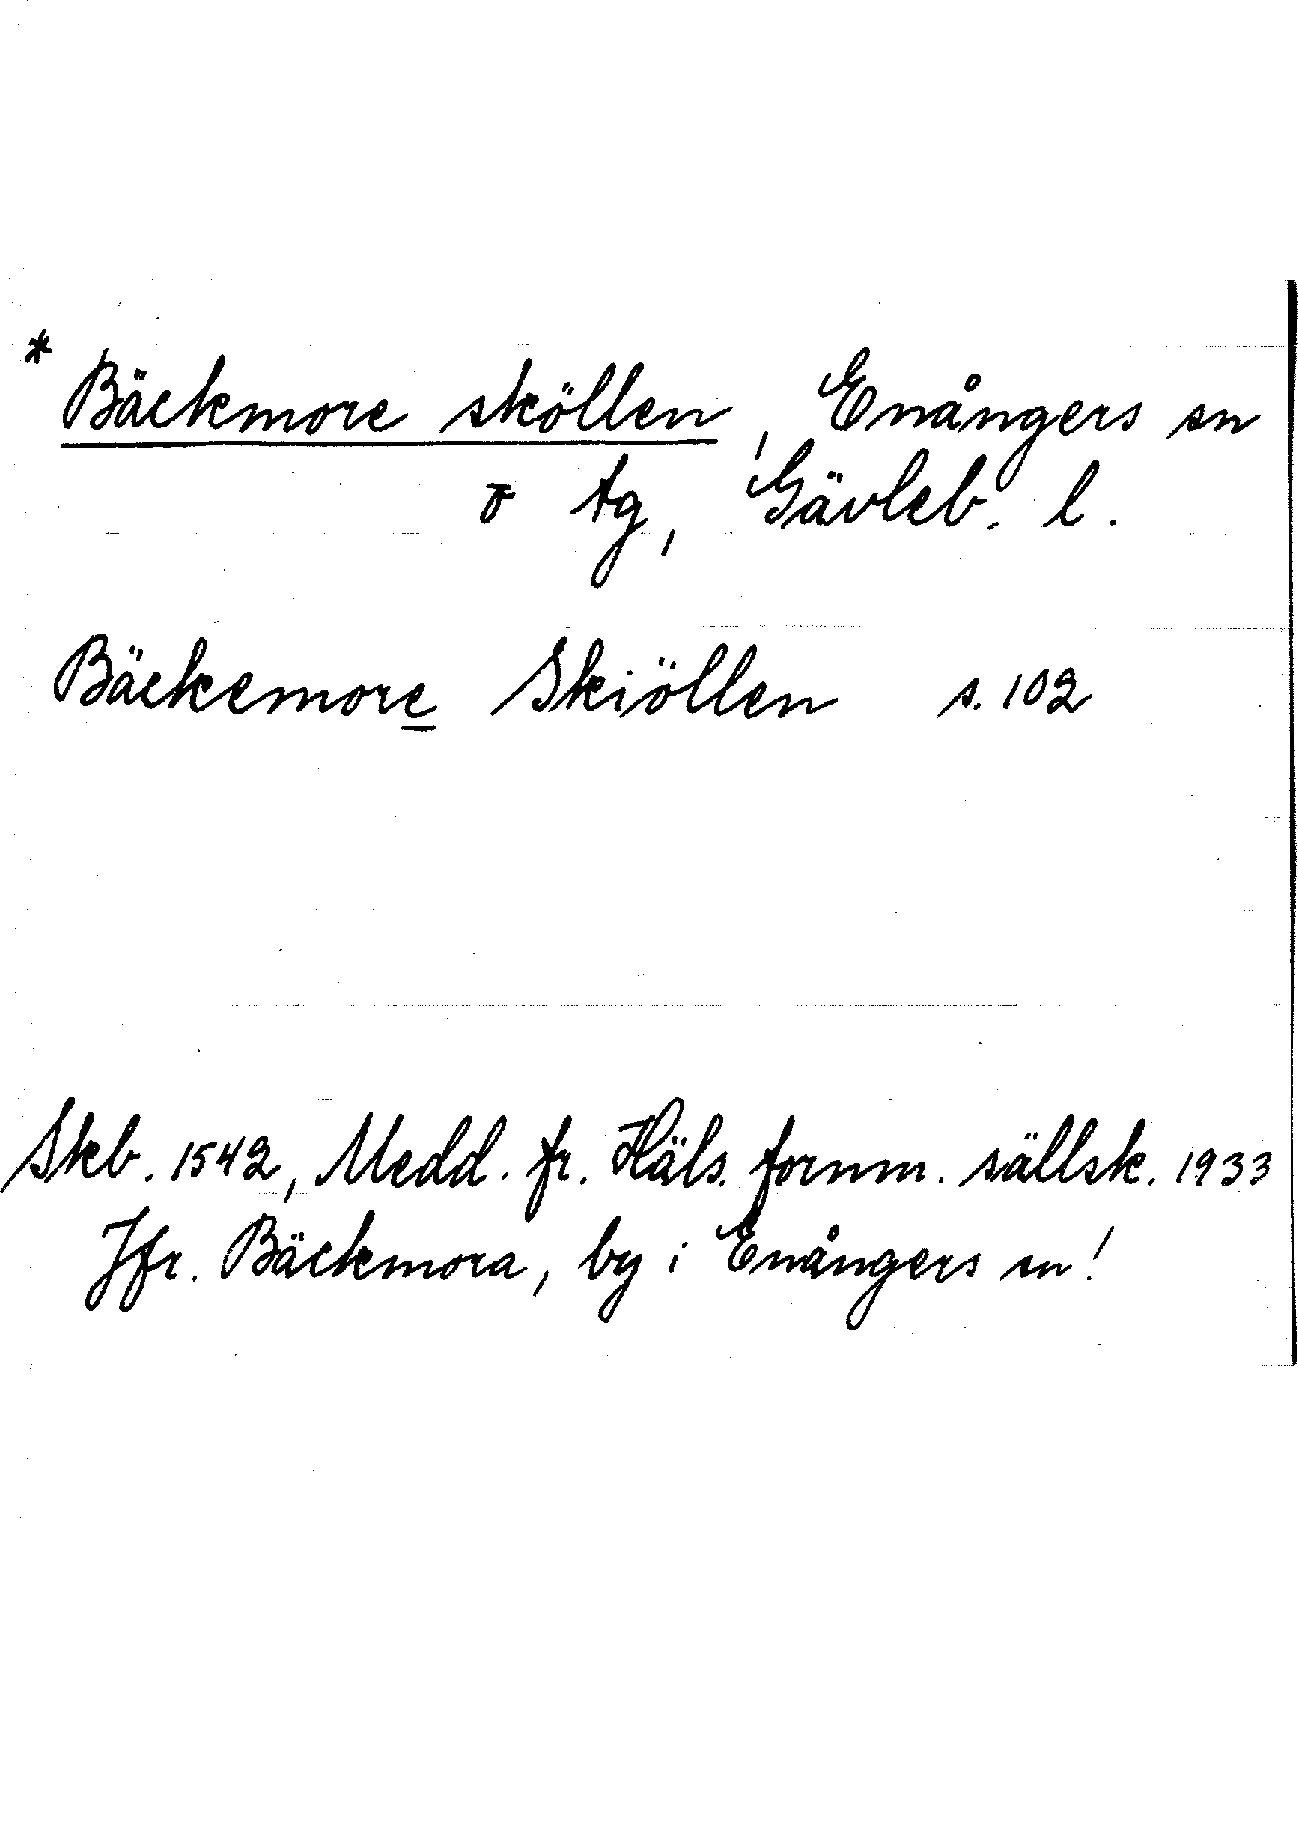 * Bäckmore sköllen, Enångers sn
o tg, Gävleb. l.
Bäckemore Skiöllen s. 102
Skb. 1542, Medd. fr. Häls. fornm. sällsk. 1933
Jfr. Bäckmora, by i Enångers sn!